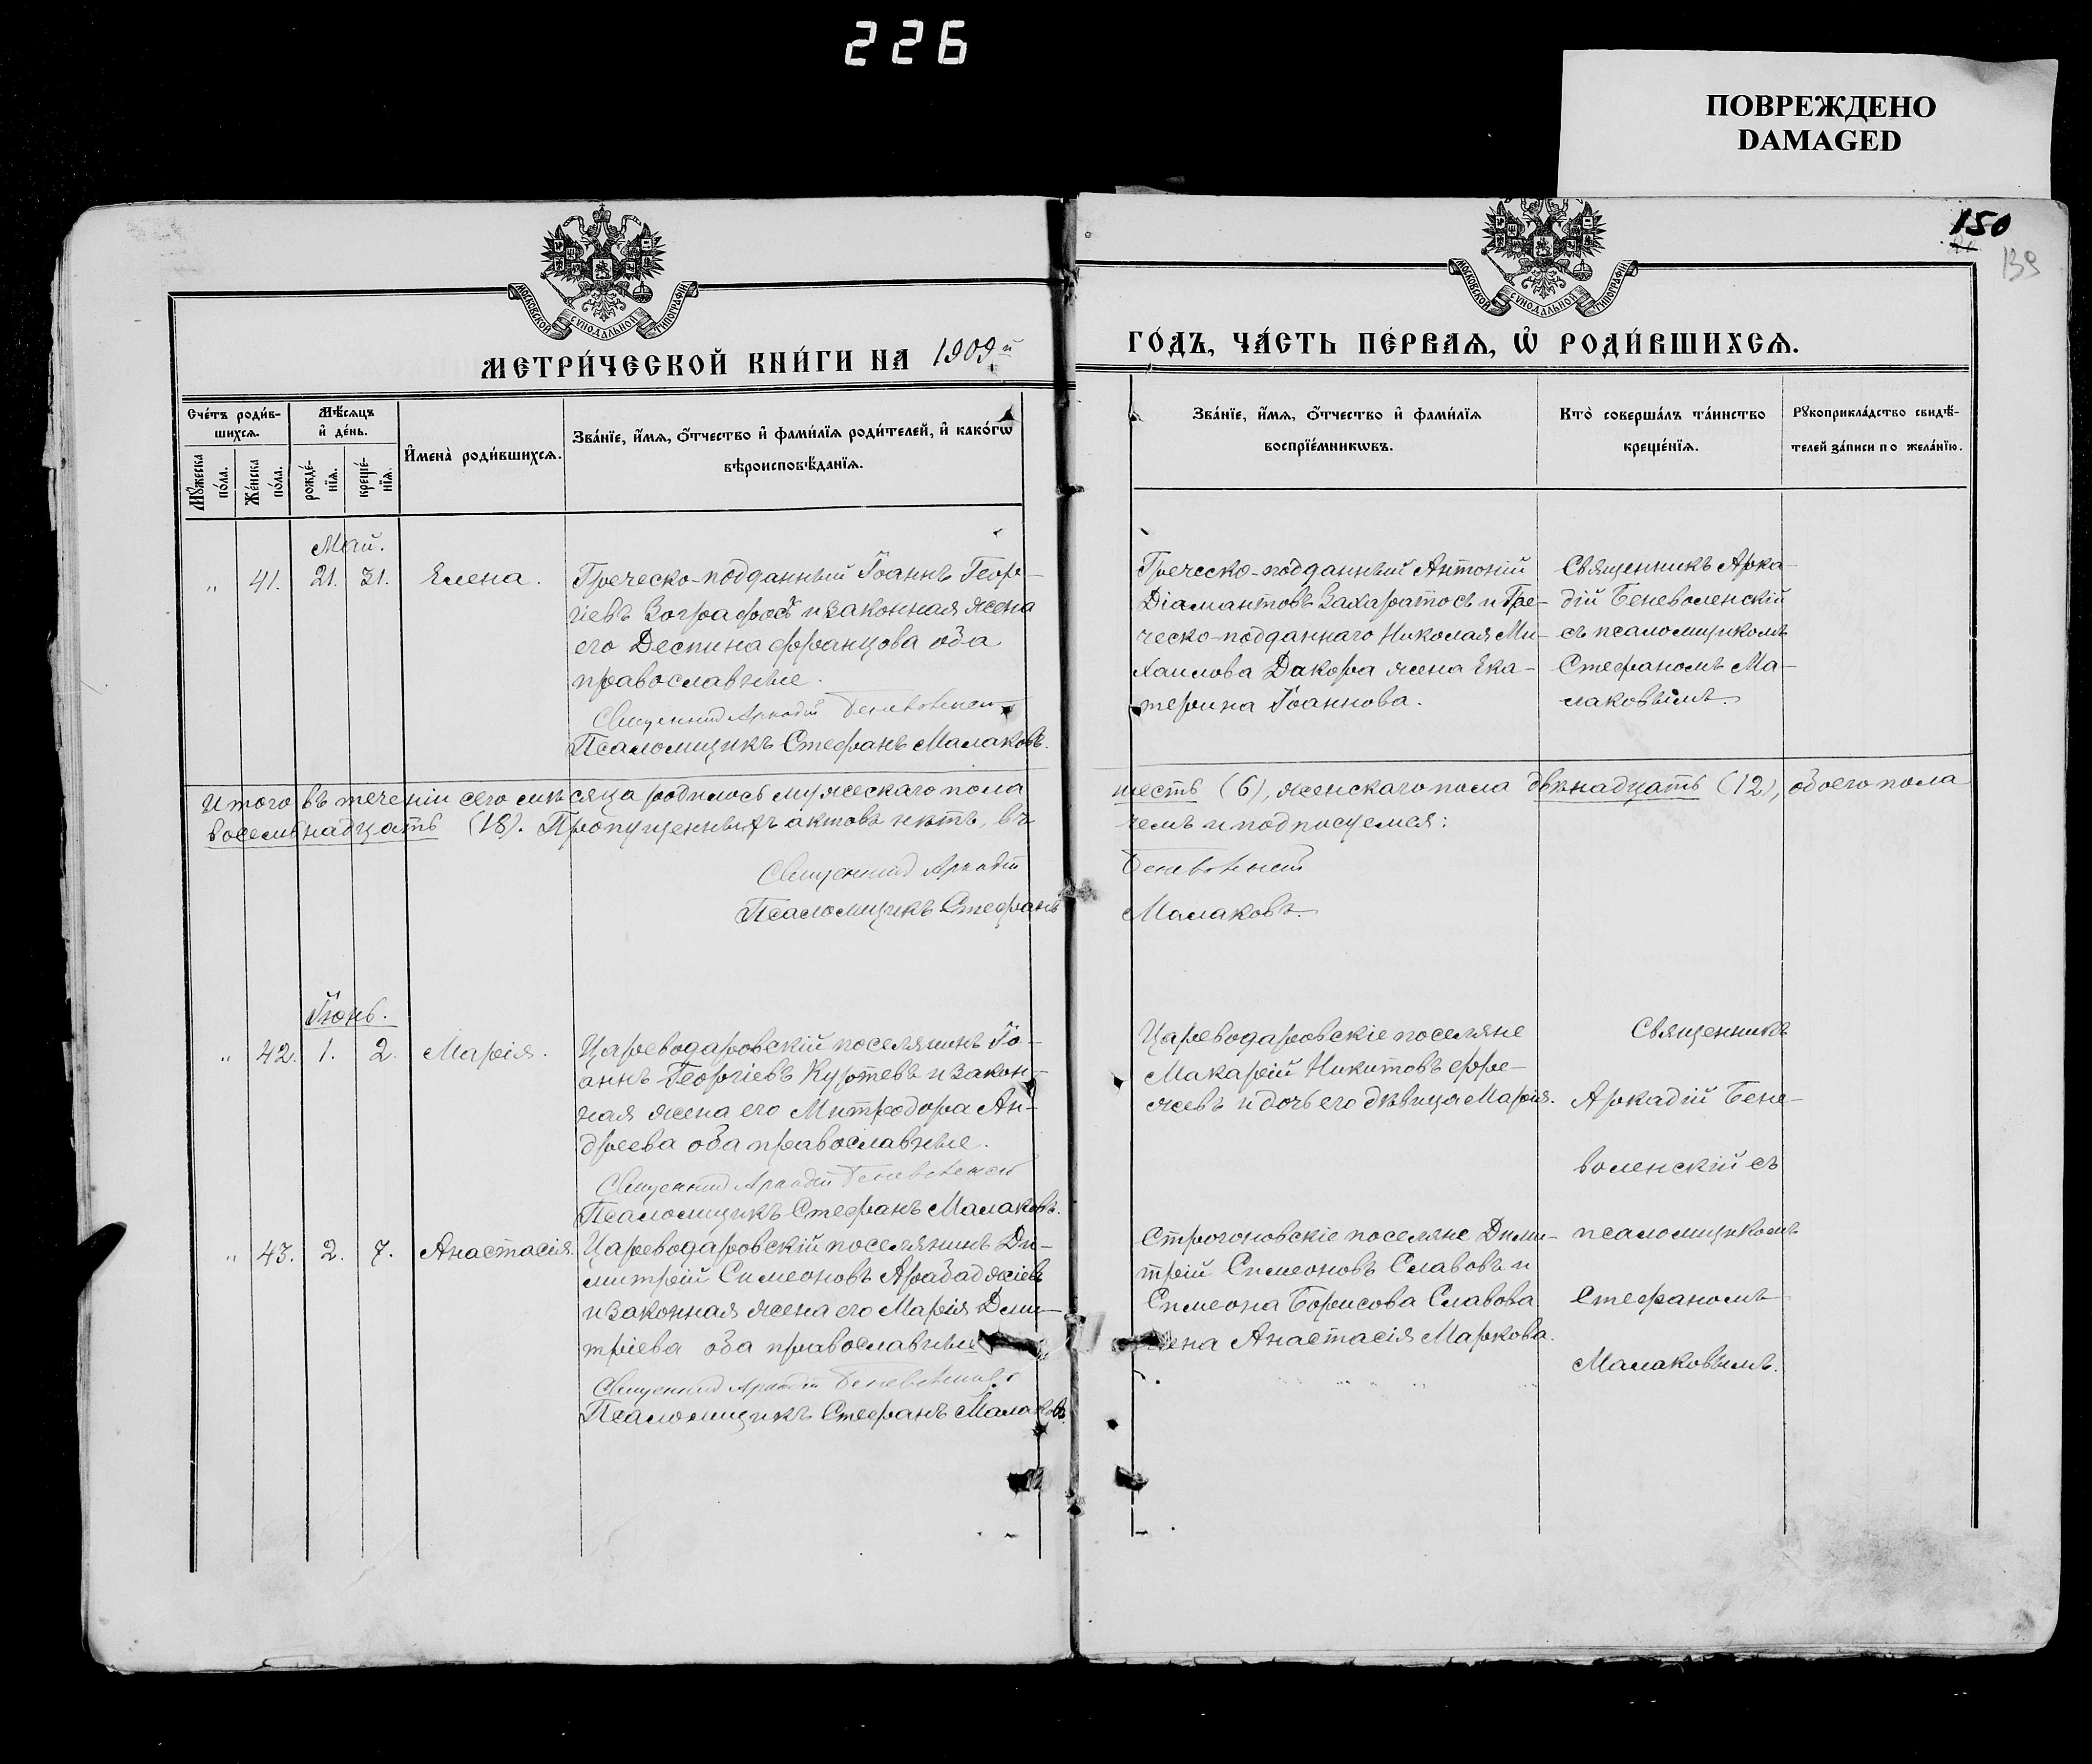 226
ПОВРЕЖДЕНО
DAMAGED
150
139
МОСКОВСКОЙ СУНОДАЛЬНОЙ ТИПОГРАФІИ
МОСКОВСКОЙ СУНОДАЛЬНОЙ ТИПОГРАФІИ
МЕТРИ́ЧЕСКОЙ КНИ́ГИ НА 1909й
ГО́ДЪ, ЧА́СТЬ ПЕ́РВАѦ, Ѡ҆ РОДИ́ВШИХСѦ.
Сче́тъ роди́в-
шихсѧ.
Мꙋ́жеска
по́ла.
Же́нска
по́ла.
Мѣ́сѧцъ
и҆ де́нь.
рожде́-
нїѧ.
креще́-
нїѧ.
И҆мена̀ роди́вшихсѧ.
Зва́нїе, и҆́мѧ, ѻ҆́тчество и҆ фами́лїѧ роди́телей, и҆ како́гѡ
вѣроисповѣ́данїѧ.
Зва́нїе, и҆́мѧ, ѻ҆́тчество и҆ фами́лїѧ
воспрїе́мникѡвъ.
Кто̀ соверша́лъ та́инство
креще́нїѧ.
Рꙋкоприкла́дство свидѣ́-
телей за́писи по жела́нїю.
Май.
" 41. 21. 31. Елена.
Греческо-подданный Іоаннъ Геор-
гіевъ Зографосъ и законная жена
его Деспина Францова оба
православные.
Священникъ Аркадій Беневоленскій
Псаломщикъ Стефанъ Малаковъ.
Греческо-подданный Антоній
Діамантовъ Захаратосъ и Гре-
ческо-подданнаго Николая Ми-
хаилова Дакора жена Ека-
терина Іоаннова.
Священникъ Арка-
дій Беневоленскій
съ псаломщикомъ
Стефаномъ Ма-
лаковымъ.
Итого въ теченіи сего мѣсяца родилось мужескаго пола
шесть (6), женскаго пола двѣнадцать (12), обоего пола
восемьнадцать (18). Пропущенныхъ актовъ нѣтъ, въ
чемъ и подписуемся:
Священникъ Аркадій
Беневоленскій
Псаломщикъ Стефанъ
Малаковъ.
Іюнь.
" 42. 1. 2. Марія.
Цареводаровскій поселянинъ Іо-
аннъ Георгіевъ Куртевъ и закон-
ная жена его Митродора Ан-
дреева оба православные.
Священникъ Аркадій Беневоленскій
Псаломщикъ Стефанъ Малаковъ.
Цареводаровскіе поселяне
Макарій Никитовъ Фре-
жевъ и дочь его дѣвица Марія.
Священникъ
Аркадій Бене-
воленскій съ
псаломщикомъ
Стефаномъ
Малаковымъ.
" 43. 2. 7. Анастасія.
Цареводаровскій поселянинъ Ди-
митрій Симеоновъ Арабаджіевъ
и законная жена его Марія Дми-
тріева оба православные
Священникъ Аркадій Беневоленскій
Псаломщикъ Стефанъ Малаковъ.
Строгоновскіе поселяне Дими-
трій Симеоновъ Славовъ и
Симеона Борисова Славова
жена Анастасія Маркова.